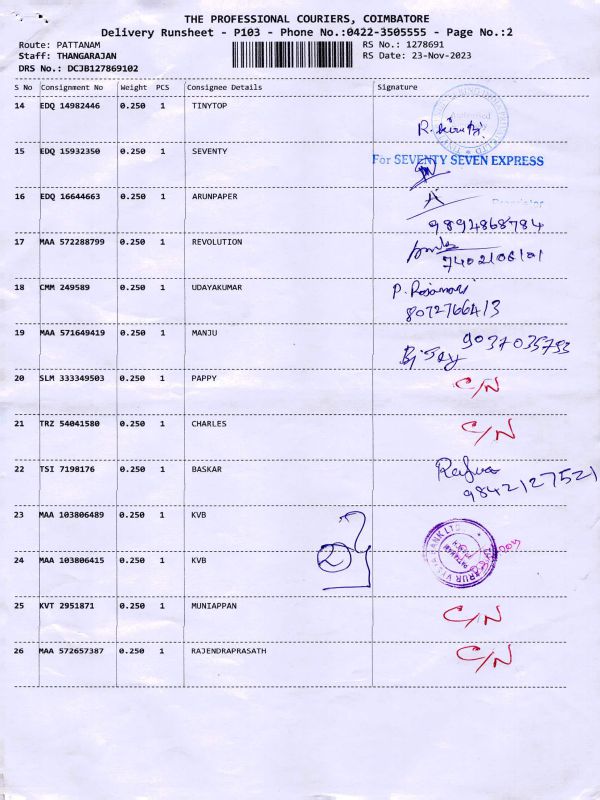 THE PROFESSIONAL COURIERS, COIMBATORE
Delivery Runsheet - P103 - Phone No.:0422-3505555 - Page No.:2
Route: PATTANAM RS No.: 1278691
Staff: THANGARAJAN RS Date: 23-Nov-2023
DRS No.: DCJB127869102
S No Consignment No Weight PCS Consignee Details Signature
14 EDQ 14982446 0.250 1 TINYTOP
15 EDQ 15932350 0.250 1 SEVENTY
For SEVENTY SEVEN EXPRESS
16 EDQ 16644663 0.250 1 ARUNPAPER
9894868784
17 MAA 572288799 0.250 1 REVOLUTION
7402106101
18 CMM 249589 0.250 1 UDAYAKUMAR P. Rajamani
8072766413
19 MAA 571649419 0.250 1 MANJU 9037035753
20 SLM 333349503 0.250 1 PAPPY C/N
21 TRZ 54041580 0.250 1 CHARLES C/N
22 TSI 7198176 0.250 1 BASKAR
9842127521
23 MAA 103806489 0.250 1 KVB
24 MAA 103806415 0.250 1 KVB
25 KVT 2951871 0.250 1 MUNIAPPAN C/N
26 MAA 572657387 0.250 1 RAJENDRAPRASATH C/N